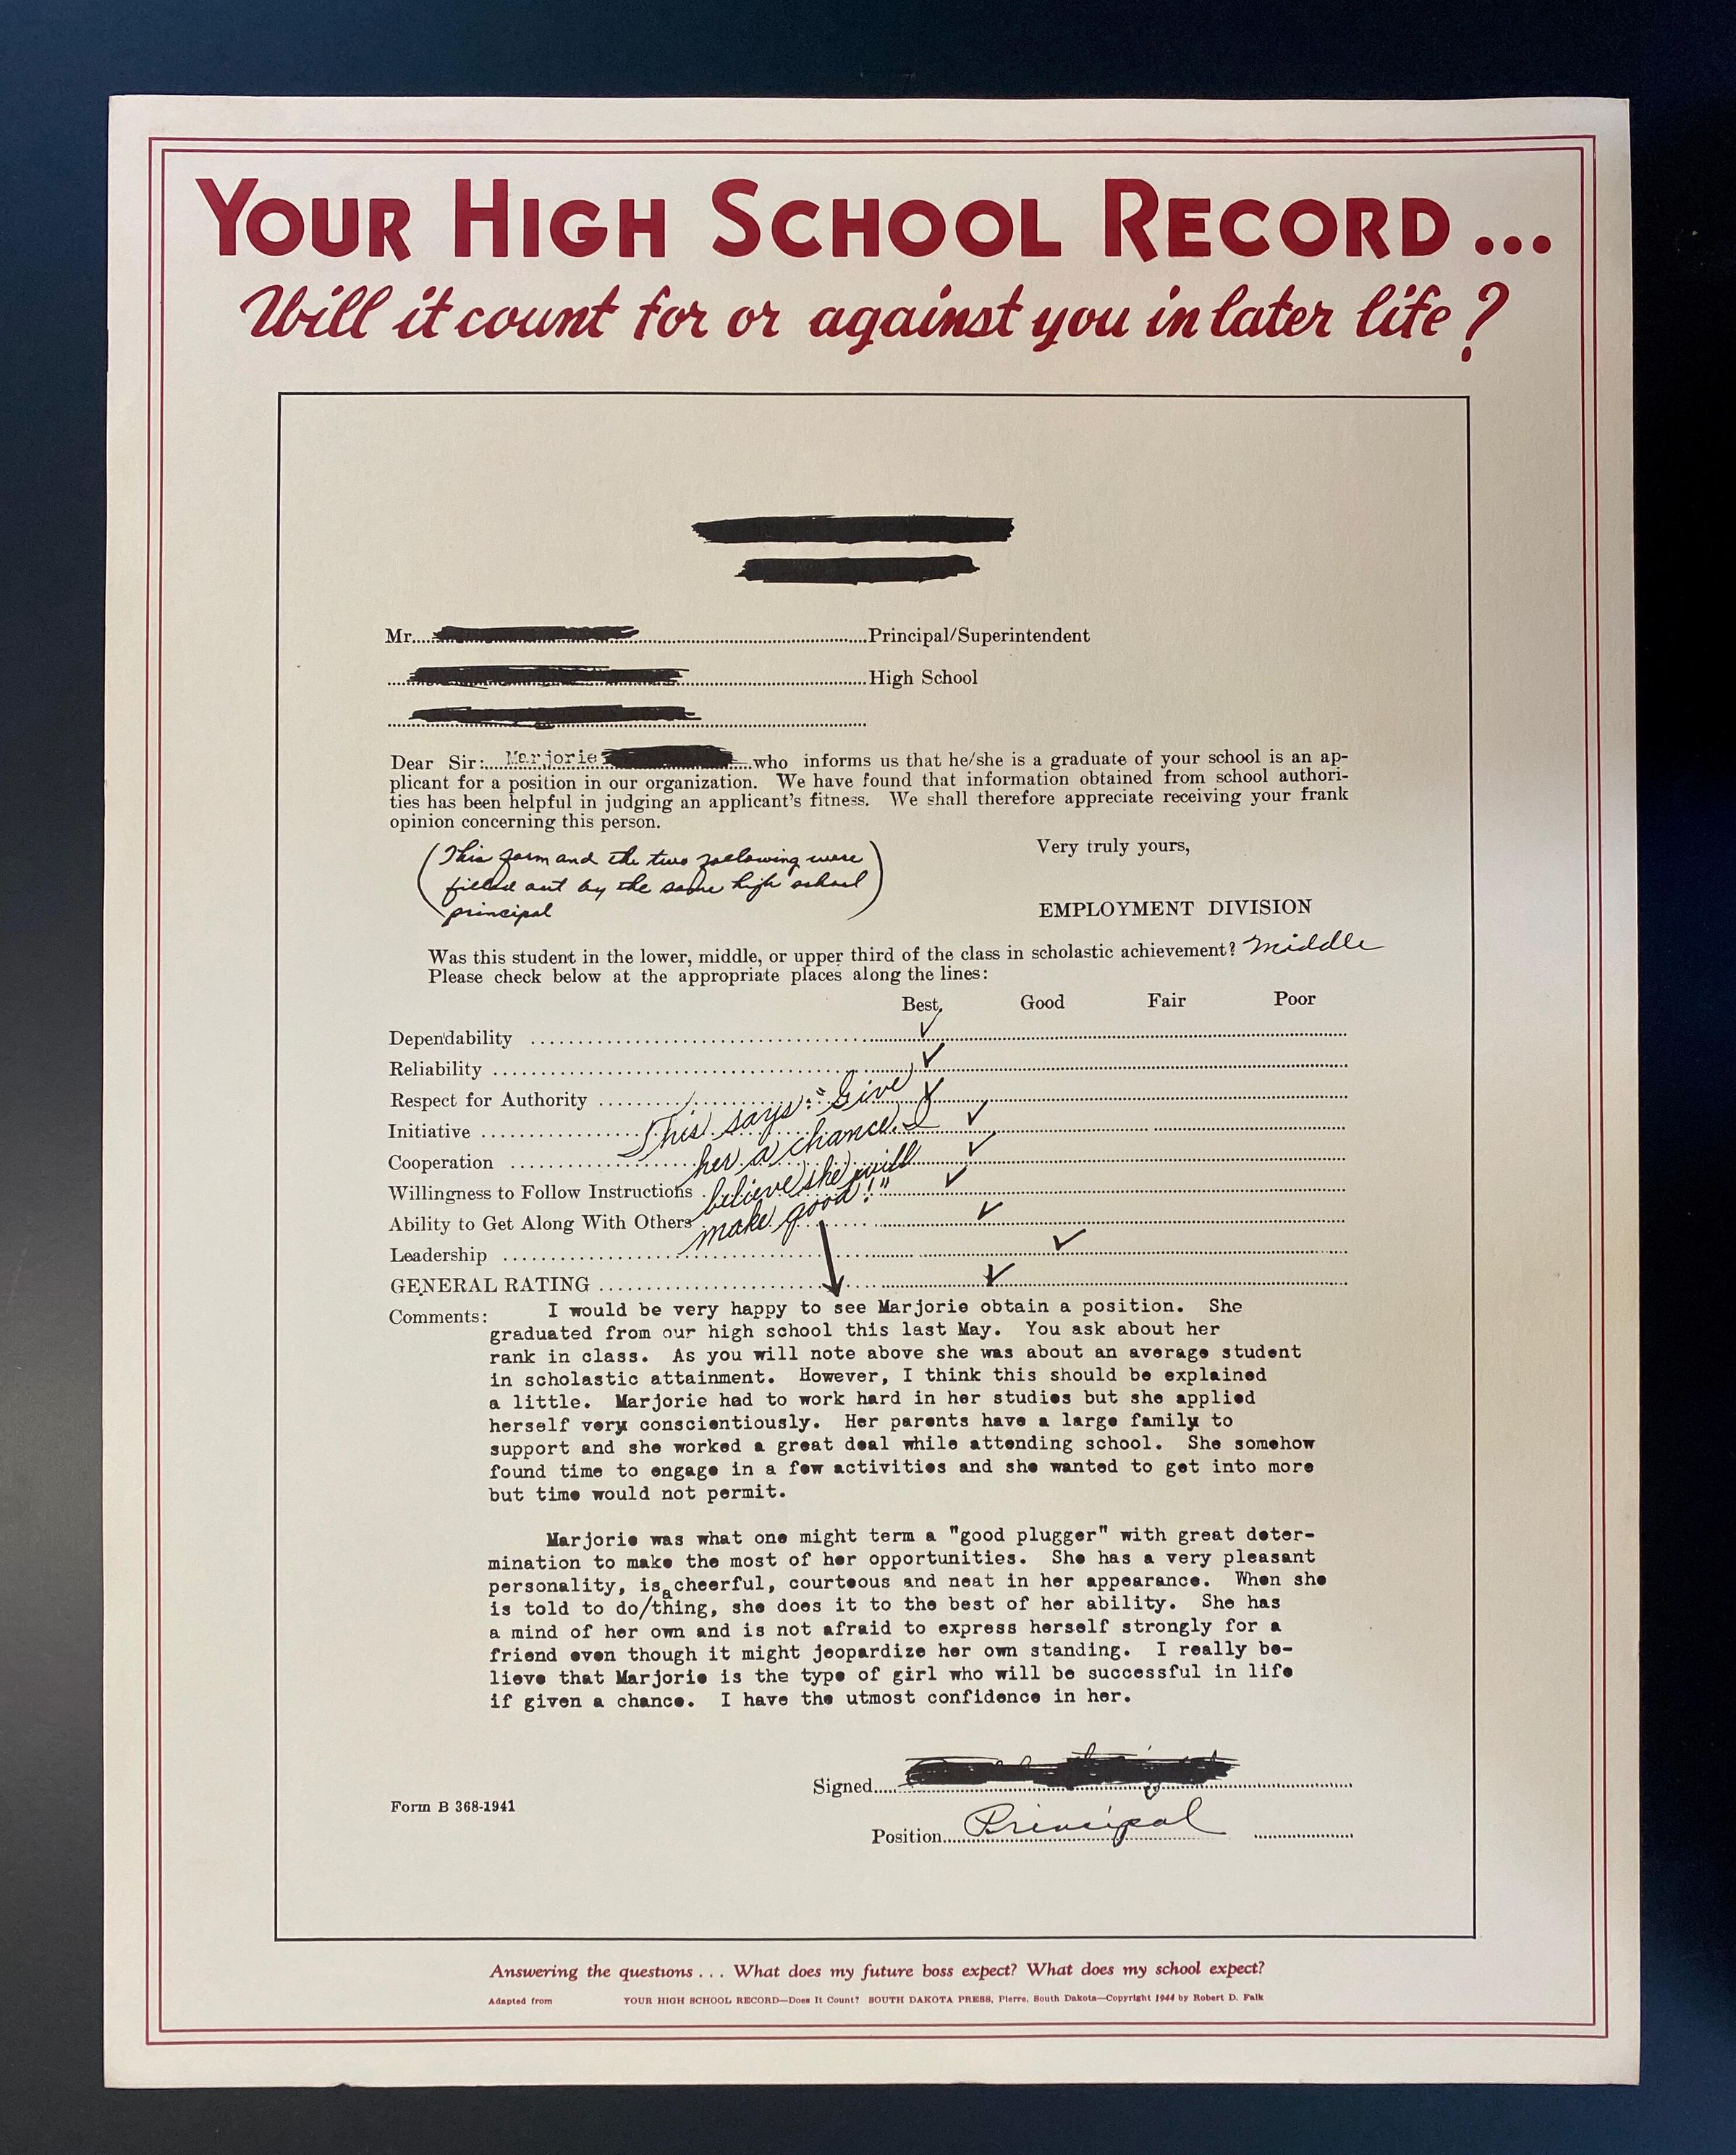 YOUR HIGH SCHOOL RECORD...
Will it count for or against you in later life?
Mr. Principal/Superintendent
High School
Dear Sir: Marjorie who informs us that he/she is a graduate of your school is an ap-
plicant for a position in our organization. We have found that information obtained from school authori-
ties has been helpful in judging an applicant's fitness. We shall therefore appreciate receiving your frank
opinion concerning this person.
Very truly yours,
(This form and the two following were
filled out by the same high school
principal)
EMPLOYMENT DIVISION
Was this student in the lower, middle, or upper third of the class in scholastic achievement? Middle
Please check below at the appropriate places along the lines:
Best Good Fair Poor
Dependability ✓
Reliability ✓
Respect for Authority ✓
Initiative ✓
Cooperation ✓
Willingness to Follow Instructions ✓
Ability to Get Along With Others ✓
Leadership ✓
GENERAL RATING ✓
This says: "Give
her a chance. I
believe she will
make good!"
Comments: I would be very happy to see Marjorie obtain a position. She
graduated from our high school this last May. You ask about her
rank in class. As you will note above she was about an average student
in scholastic attainment. However, I think this should be explained
a little. Marjorie had to work hard in her studies but she applied
herself very conscientiously. Her parents have a large family to
support and she worked a great deal while attending school. She somehow
found time to engage in a few activities and she wanted to get into more
but time would not permit.
Marjorie was what one might term a "good plugger" with great deter-
mination to make the most of her opportunities. She has a very pleasant
personality, is cheerful, courteous and neat in her appearance. When she
is told to do/a thing, she does it to the best of her ability. She has
a mind of her own and is not afraid to express herself strongly for a
friend even though it might jeopardize her own standing. I really be-
lieve that Marjorie is the type of girl who will be successful in life
if given a chance. I have the utmost confidence in her.
Signed
Form B 368-1941
Position Principal
Answering the questions... What does my future boss expect? What does my school expect?
Adapted from YOUR HIGH SCHOOL RECORD—Does It Count? SOUTH DAKOTA PRESS, Pierre, South Dakota—Copyright 1944 by Robert D. Falk